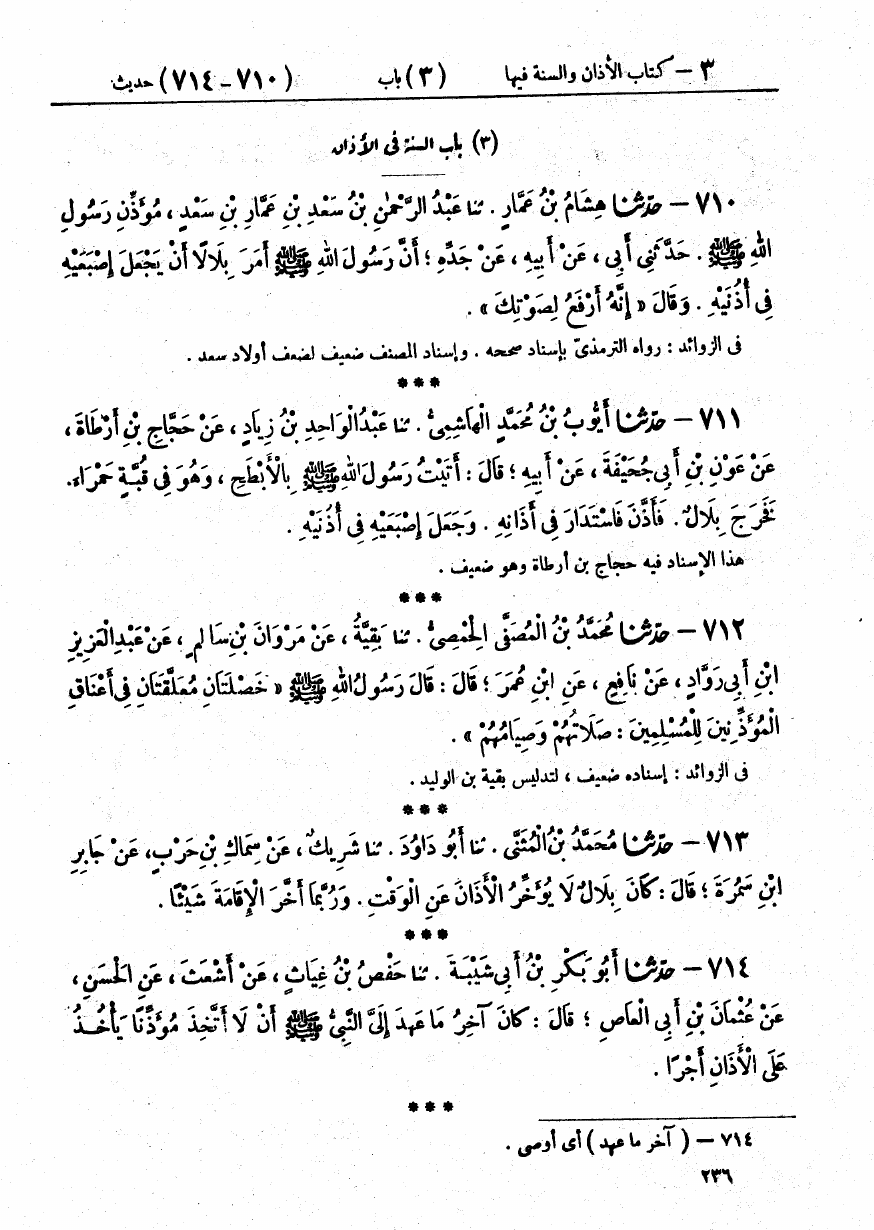 ٣ – كتاب الأذان والسنة فيها (٣) باب (٧١٠ – ٧١٤) حديث
(٣) باب السنة فى الأذان
٧١٠ – حدّثنا هِشَامُ بْنُ عَمَّارٍ . ثنا عَبْدُ الرَّحْمٰنِ بْنُ سَعْدِ بْنِ عَمَّارِ بْنِ سَعْدٍ ، مُؤَذِّنِ رَسُولِ
اللهِ ﷺ . حَدَّثَنِى أَبِى ، عَنْ أَبِيهِ ، عَنْ جَدِّهِ ؛ أَنَّ رَسُولَ اللهِ ﷺ أَمَرَ بِلَالًا أَنْ يَجْعَلَ إِصْبَعَيْهِ
فِى أُذُنَيْهِ . وَقَالَ « إِنَّهُ أَرْفَعُ لِصَوْتِكَ » .
فى الزوائد : رواه الترمذىّ بإسناد صححه . وإسناد المصنف ضعيف لضعف أولاد سعد .
***
٧١١ – حدّثنا أَيُّوبُ بْنُ مُحَمَّدٍ الْهَاشِمِىُّ . ثنا عَبْدُ الْوَاحِدِ بْنُ زِيَادٍ ، عَنْ حَجَّاجِ بْنِ أَرْطَاةَ ،
عَنْ عَوْنِ بْنِ أَبِى جُحَيْفَةَ ، عَنْ أَبِيهِ ؛ قَالَ : أَتَيْتُ رَسُولَ اللهِ ﷺ بِالْأَبْطَحِ ، وَهُوَ فِى قُبَّةٍ حَمْرَاءَ.
فَخَرَجَ بِلَالٌ . فَأَذَّنَ فَاسْتَدَارَ فِى أَذَانِهِ . وَجَعَلَ إِصْبَعَيْهِ فِى أُذُنَيْهِ .
هذا الإسناد فيه حجاج بن أرطاة وهو ضعيف .
***
٧١٢ – حدّثنا مُحَمَّدُ بْنُ الْمُصَفَّى الْحِمْصِىُّ . ثنا بَقِيَّةُ ، عَنْ مَرْوَانَ بْنِ سَالِمٍ ، عَنْ عَبْدِ الْعَزِيزِ
ابْنِ أَبِى رَوَّادٍ ، عَنْ نَافِعٍ ، عَنِ ابْنِ عُمَرَ ؛ قَالَ : قَالَ رَسُولُ اللهِ ﷺ « خَصْلَتَانِ مُعَلَّقَتَانِ فِى أَعْنَاقِ
الْمُؤَذِّنِينَ لِلْمُسْلِمِينَ : صَلَاتُهُمْ وَصِيَامُهُمْ » .
فى الزوائد : إسناده ضعيف ، لتدليس بقية بن الوليد .
***
٧١٣ – حدّثنا مُحَمَّدُ بْنُ الْمُثَنَّى . ثنا أَبُو دَاوُدَ . ثنا شَرِيكٌ ، عَنْ سِمَاكِ بْنِ حَرْبٍ، عَنْ جَابِرِ
ابْنِ سَمُرَةَ ؛ قَالَ : كَانَ بِلَالٌ لَا يُؤَخِّرُ الْأَذَانَ عَنِ الْوَقْتِ . وَرُبَّمَا أَخَّرَ الْإِقَامَةَ شَيْئًا .
***
٧١٤ – حدّثنا أَبُو بَكْرِ بْنُ أَبِى شَيْبَةَ . ثنا حَفْصُ بْنُ غِيَاثٍ ، عَنْ أَشْعَثَ ، عَنِ الْحَسَنِ ،
عَنْ عُثْمَانَ بْنِ أَبِى الْعَاصِ ؛ قَالَ : كَانَ آخِرُ مَا عَهِدَ إِلَىَّ النَّبِىُّ ﷺ أَنْ لَا أَتَّخِذَ مُؤَذِّنًا يَأْخُذُ
عَلَى الْأَذَانِ أَجْرًا .
***
٧١٤ – ( آخر ما عهد ) أى أوصى .
٢٣٦